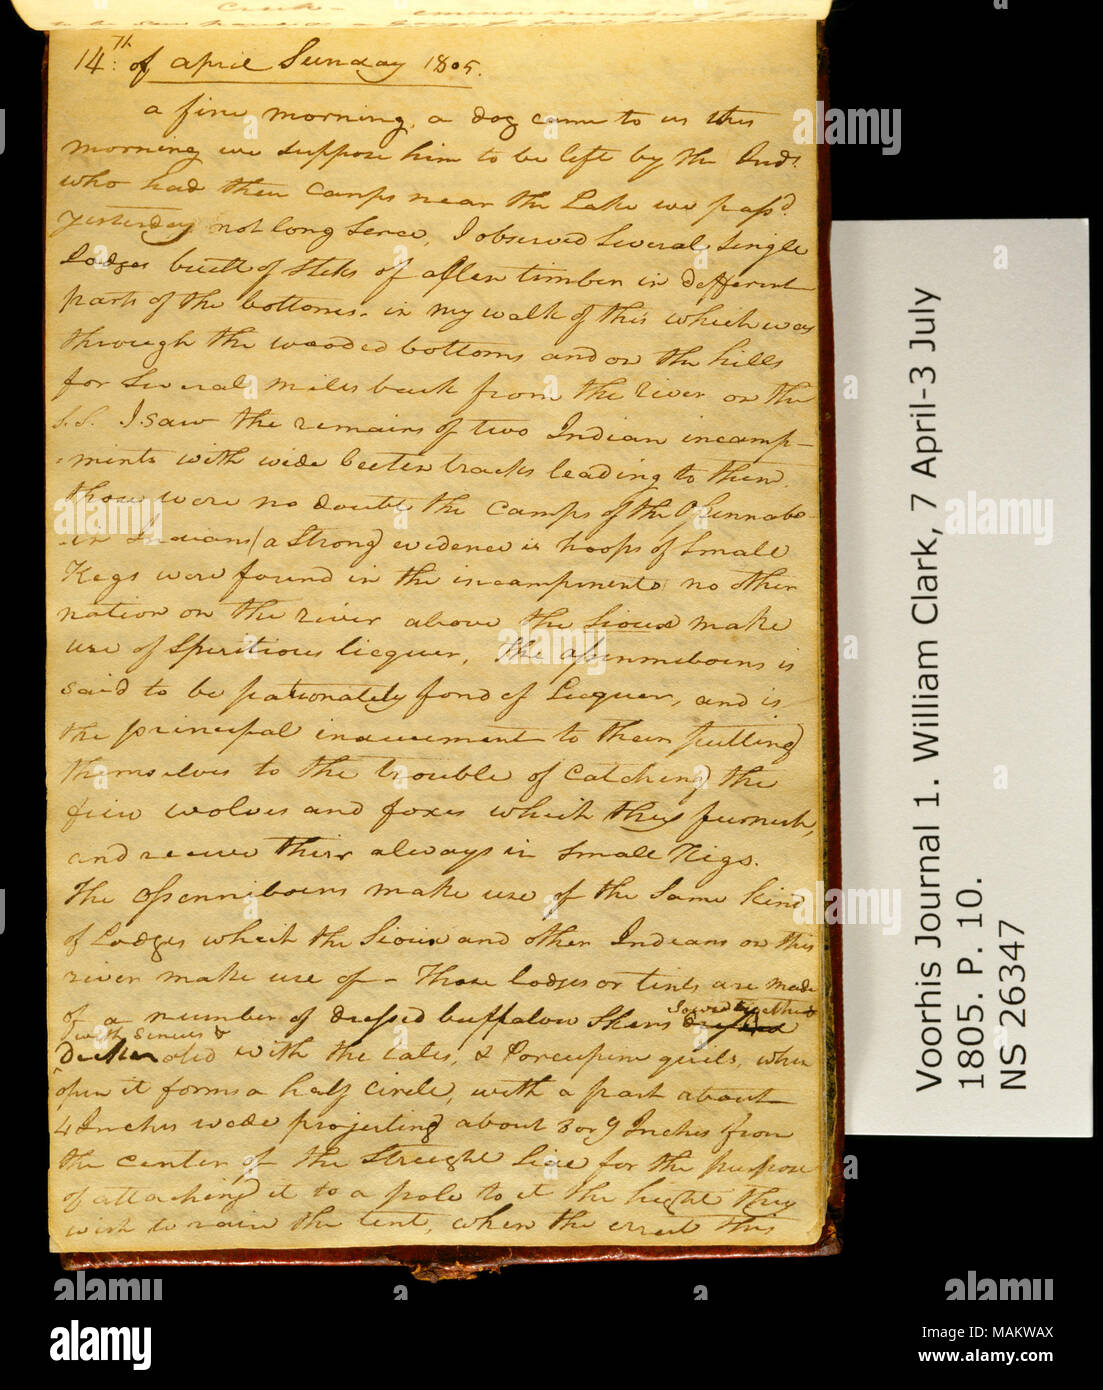 14th of april Sunday 1805.
a fine morning, a dog came to us this
morning we suppose him to be left by the Inds.
who had their Camps near the Lake we passd.
yesterday not long sence, I observed Several Single
Lodges built of stiks of
timber in defferent
parts of the bottoms. in my walk of this which was
through the wooded bottoms and on the hills
for several miles back from the river on the
S.S. I saw the remains of two Indian incamp-
-ments with wide beeten tracks leading to them.
those were no doubt the Camps of the Ossinnabo-
-in Indians (a Strong evidence is hoops of Small
Kegs were found in the incampments no other
nation on the river above the Sioux make
use of Speritious licquer, the Ossinniboins is
said to be pationately fond of Licquer, and is
the principal inducement to their putting
themselves to the trouble of Catching the
fiew wolves and foxes which they furnish,
and recive their always in small Kegs.
The Ossinniboins make use of the Same kind
of Lodges which the Sioux and other Indians on this
river make use of - Those lodges or tents are made
of a number of dressed buffalow Skins Sowed together
with Sinues &
deckerated with the tales, & Porcupine quils, when
open it forms a half circle, with a part about
4 Inches wide projecting about 8 or 9 Inches from
the center of the Streight Side for the purpose
of attaching it to a pole to it the hight they
wish to raise the tent, when the errect this
Voorhis Journal 1. William Clark, 7 April-3 July
1805. P. 10.
NS 26347
alamy
a
Image ID: MAKWAX
www.alamy.com